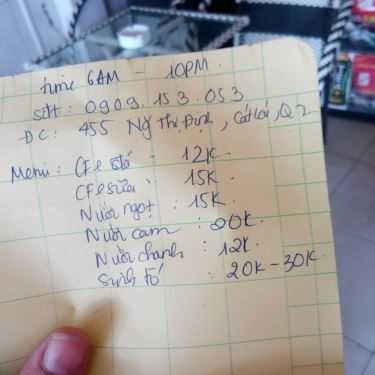 time 6AM - 10PM.
sđt: 0909.153.053
ĐC: 455 Ng Thị Định, Cát Lái, Q2
Menu: CFe đá - 12K.
CFe sữa 15K
Nước ngọt : 15K.
Nước cam : 20K.
Nước chanh : 12K.
Sinh tố : 20K - 30K.